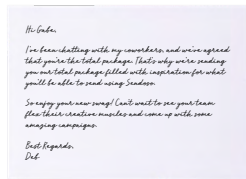 Hi Gabe,
I've been chatting with my coworkers, and we've agreed
that you're the total package. That's why we're sending
you our total package filled with inspiration for what
you'll be able to send using Sendoso.
So enjoy your new swag! Can't wait to see your team
flex their creative muscles and come up with some
amazing campaigns.
Best Regards,
Deb